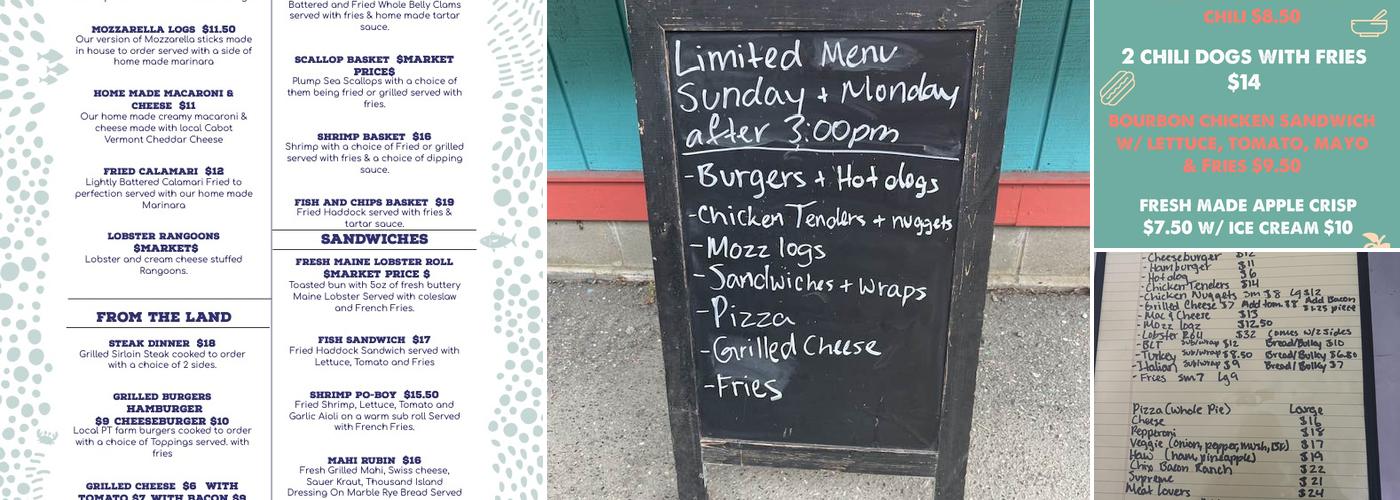 MOZZARELLA LOGS $11.50
Our version of Mozzarella sticks made
in house to order served with a side of
home made marinara
HOME MADE MACARONI &
CHEESE $11
Our home made creamy macaroni &
cheese made with local Cabot
Vermont Cheddar Cheese
FRIED CALAMARI $12
Lightly Battered Calamari Fried to
perfection served with our home made
Marinara
LOBSTER RANGOONS
$MARKET$
Lobster and cream cheese stuffed
Rangoons.
FROM THE LAND
STEAK DINNER $18
Grilled Sirloin Steak cooked to order
with a choice of 2 sides.
GRILLED BURGERS
HAMBURGER
$9 CHEESEBURGER $10
Local PT farm burgers cooked to order
with a choice of Toppings served. with
fries
GRILLED CHEESE $6 WITH
TOMATO $7 WITH BACON $9
Battered and Fried Whole Belly Clams
served with fries & home made tartar
sauce.
SCALLOP BASKET $MARKET
PRICE$
Plump Sea Scallops with a choice of
them being fried or grilled served with
fries.
SHRIMP BASKET $16
Shrimp with a choice of Fried or grilled
served with fries & a choice of dipping
sauce.
FISH AND CHIPS BASKET $19
Fried Haddock served with fries &
tartar sauce.
SANDWICHES
FRESH MAINE LOBSTER ROLL
$MARKET PRICE $
Toasted bun with 5oz of fresh buttery
Maine Lobster Served with coleslaw
and French Fries.
FISH SANDWICH $17
Fried Haddock Sandwich served with
Lettuce, Tomato and Fries
SHRIMP PO-BOY $15.50
Fried Shrimp, Lettuce, Tomato and
Garlic Aioli on a warm sub roll Served
with French Fries.
MAHI RUBIN $16
Fresh Grilled Mahi, Swiss cheese,
Sauer Kraut, Thousand Island
Dressing On Marble Rye Bread Served
Limited Menu
Sunday + Monday
after 3:00pm
-Burgers + Hot dogs
-Chicken Tenders + nuggets
-Mozz logs
-Sandwiches + Wraps
-Pizza
-Grilled Cheese
-Fries
CHILI $8.50
2 CHILI DOGS WITH FRIES
$14
BOURBON CHICKEN SANDWICH
W/ LETTUCE, TOMATO, MAYO
& FRIES $9.50
FRESH MADE APPLE CRISP
$7.50 W/ ICE CREAM $10
-Cheeseburger $12
-Hamburger $11
-Hotdog $6
-Chicken Tenders $14
-Chicken Nuggets Sm $8 Lg $12
-Grilled Cheese $7 Add tom. $8 Add Bacon $1.25 piece
-Mac & Cheese $13
-Mozz logz $12.50
-Lobster Roll $32 Comes w/2 sides
-BLT Sub/wrap $12 Bread/Bulky $10
-Turkey Sub/wrap $8.50 Bread/Bulky $6.50
-Italian Sub/wrap $9 Bread/Bulky $7
-Fries sm 7 Lg 9
Pizza (Whole Pie) Large
Cheese $16
Pepperoni $18
Veggie (onion, pepper, mush, $17
Haw (ham, pineapple) $19
Chix Bacon Ranch $22
Supreme $21
Meat Lovers $24